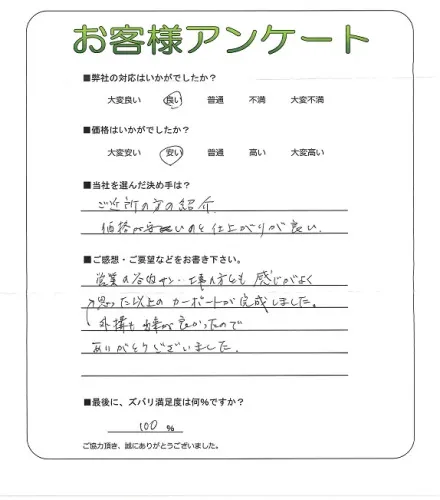 お客様アンケート
■弊社の対応はいかがでしたか？
大変良い 良い 普通 不満 大変不満
■価格はいかがでしたか？
大変安い 安い 普通 高い 大変高い
■当社を選んだ決め手は？
ご近所の方の紹介
価格が安いのと仕上がりが良い.
■ご感想・ご要望などをお書き下さい。
営業の谷内サン・工事の方も 感じがよく
思った以上の カーポートが完成しました。
外構も 出来が良かったので
ありがとうございました.
■最後に、ズバリ満足度は何%ですか？
100 %
ご協力頂き、誠にありがとうございました。